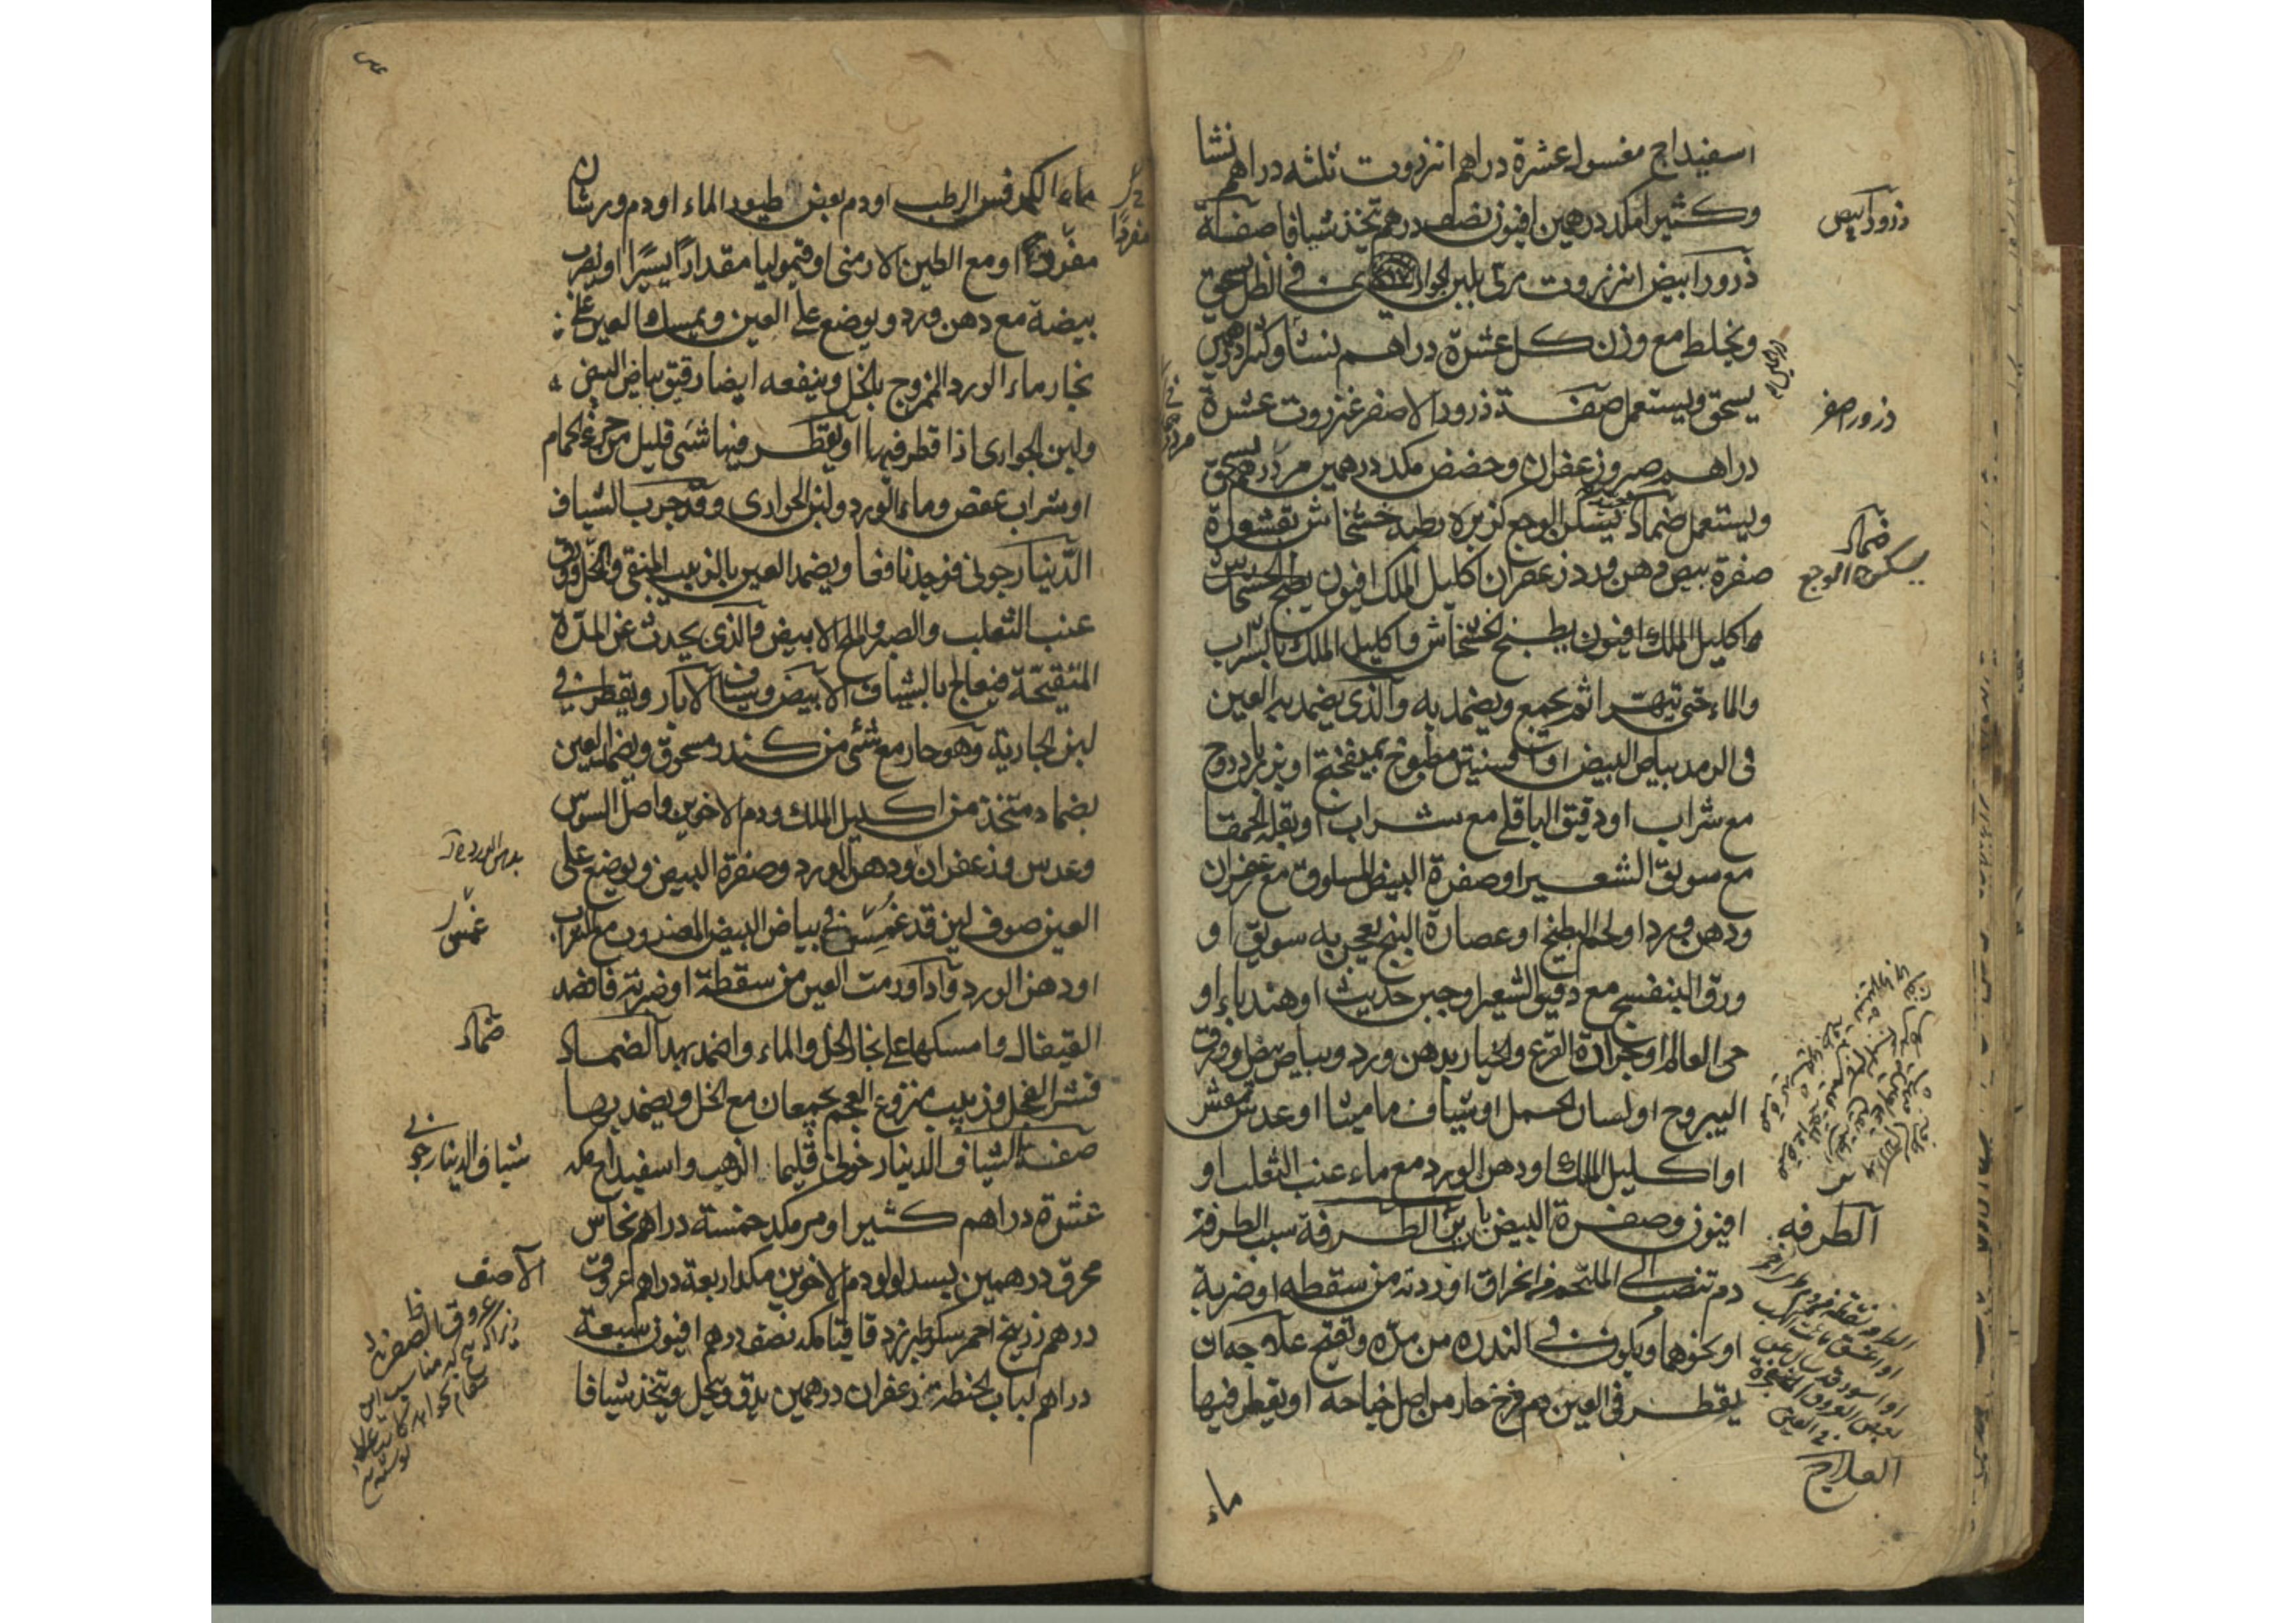 اسفيداج مغسول عشرة دراهم انزروت ثلثه دراهم نشا
وكثيرا مكد درهمين افيون نصف درهم تتخذ شيافا صفة
ذرور ابيض انزروت مربى بلبن الجوارى في الظل يسحق
ويخلط مع وزن كل عشرة دراهم نشا وكثيرا درهمين
يسحق ويستعمل صفة ذرور الاصفر عنزروت عشرة
دراهم صبر وزعفران وحضض مكد درهمين مر درهم يسحق
ويستعمل ضماد يسكن الوجع كزبرة رطبه خشخاش بقشوره
صفرة بيض دهن ورد زعفران اكليل الملك افيون يطبخ الخشخاش
واكليل الملك افيون يطبخ الخشخاش واكليل الملك بالشراب
والماء حتى تيهرا ثم يجمع ويضمد به والذى يضمد به العين
فى الرمد بياض البيض او افسنتين مطبوخ بميفختج او بزباردوج
مع شراب او دقيق الباقلى مع شراب او بقلة الحمقا
مع سويق الشعير او صفرة البيض المسلوق مع زعفران
ودهن ورد او لحم البطيخ او عصارة البنج يعجن به سويق او
ورق البنفسج مع دقيق الشعير او جبن حديث او هندباء او
حى العالم او جرادة القرع والخيار بدهن ورد وبياض بيض او ورق
اليبروح او لسان الحمل او شياف ماميثا او عدس مقشر
او اكليل الملك او دهن الورد مع ماء عنب الثعلب او
افيون وصفرة البيض باب فى الطرفة سبب الطرفة
دم تنصب الى الملتحم من انخراق اوردته من سقطه او ضربة
او نحوهما ويكون في الندرة من مدّه وتقيح علاجه ان
يقطر فى العين دم فرخ حار من اصل جناحه او يقطر فيها
ماء
ذرور ابيض
ذرور اصفر
ضماد
يسكن الوجع
الطرفه
العلاج
ماء الكرفس الرطب او دم بعض طيور الماء او دم ورشان
مفردًا او مع الطين الارمنى او قيموليا مقدارًا يسيرًا او يضرب
بيضة مع دهن ورد ويوضع على العين ويمسك العين على
بخار ماء الورد الممزوج بالخل وينفعه ايضا رقيق بياض البيض
ولبن الجوارى اذا قطر فيها او يقطر فيها شئ قليل من الحمام
او شراب عفص وماء الورد ولبن الجوارى وقد جرب الشياف
الدينارجونى فوجدنا نافعا ويضمد العين بالزبيب المنقى والخل وورق
عنب الثعلب والصبر والملح الابيض والذى يحدث عن المدّة
المتقيحة فيعالج بالشياف الابيض وشياف الابار ويقطر في
لبن الجارية وهو حار مع شئ من كندر مسحوق ويضمد العين
بضماد متخذ من اكليل الملك ودم الاخوين واصل السوس
وعدس وزعفران ودهن الورد وصفرة البيض ويوضع على
العين صوف لين قد غمس في بياض البيض المضروب مع الشراب
او دهن الورد واذا ورمت العين من سقطة او ضربة فافصد
القيفال وامسكها على بخار الخل والماء واضمد بهذا الضماد
قشر الفجل وزبيب منزوع العجم يجمعان مع الخل ويضمد بها
صفة الشياف الدينارخونى قليميا الذهب واسفيداج مكد
عشرة دراهم كثيرا ومر مكد خمسة دراهم نحاس
محرق درهمين بسد لولو دم الاخوين مكد اربعة دراهم عروق
درهم زرنيخ احمر سكر طبرزد قاقيا مكد نصف درهم افيون سبعة
دراهم لباب الحنطة زعفران درهمين يدق وينخل ويتخذ شيافا
مفردًا
غمس
ضماد
شياف الدينارجونى